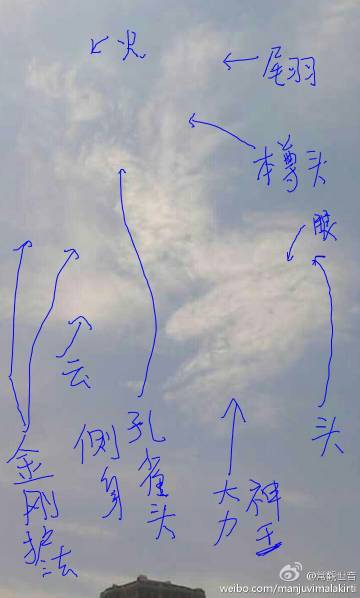 火
尾羽
本尊头
眼
云
头
金刚护法
侧身
孔雀头
大力
神王
weibo.com/manjuvimalakirti